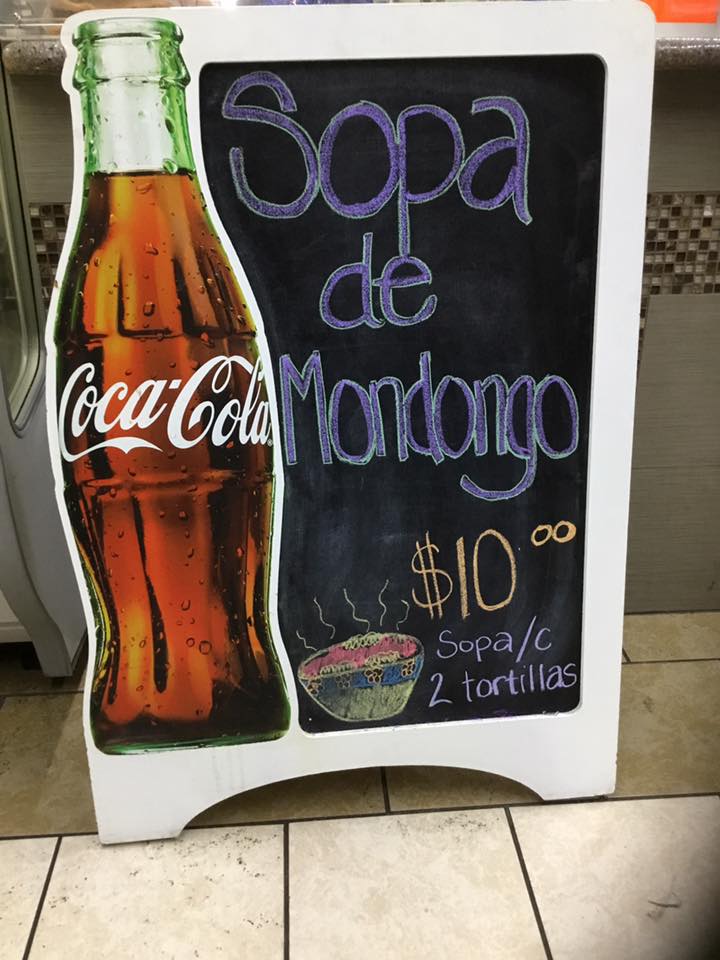 Coca-Cola
Sopa
de
Mondongo
$10 00
Sopa/c
2 tortillas